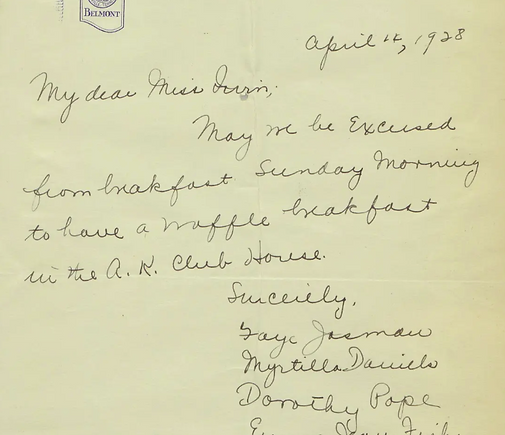 BELMONT
April 4, 1928
My dear Miss Irvin,
May we be Excused
from breakfast Sunday Morning
to have a waffle breakfast
in the A. K. Club House.
Sincerely,
Faye
Myrtilla Daniels
Dorothy Pope
Jean